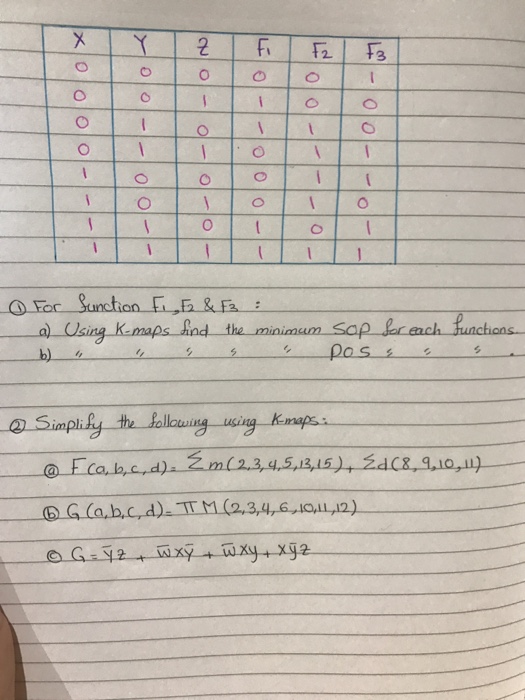 X Y Z F1 F2 F3
0 0 0 0 0 1
0 0 1 1 0 0
0 1 0 1 1 0
0 1 1 0 1 1
1 0 0 0 1 1
1 0 1 0 1 0
1 1 0 1 0 1
1 1 1 1 1 1
① For function F1, F2 & F3 :
a) Using K-maps find the minimum SOP for each functions
b) " " " " " POS " " " .
② Simplify the following using K-maps:
ⓐ F(a,b,c,d)= Σm(2,3,4,5,13,15), Σd(8,9,10,11)
ⓑ G(a,b,c,d)= ΠM(2,3,4,6,10,11,12)
ⓒ G = y̅z + w̅xy̅ + w̅xy + xy̅z